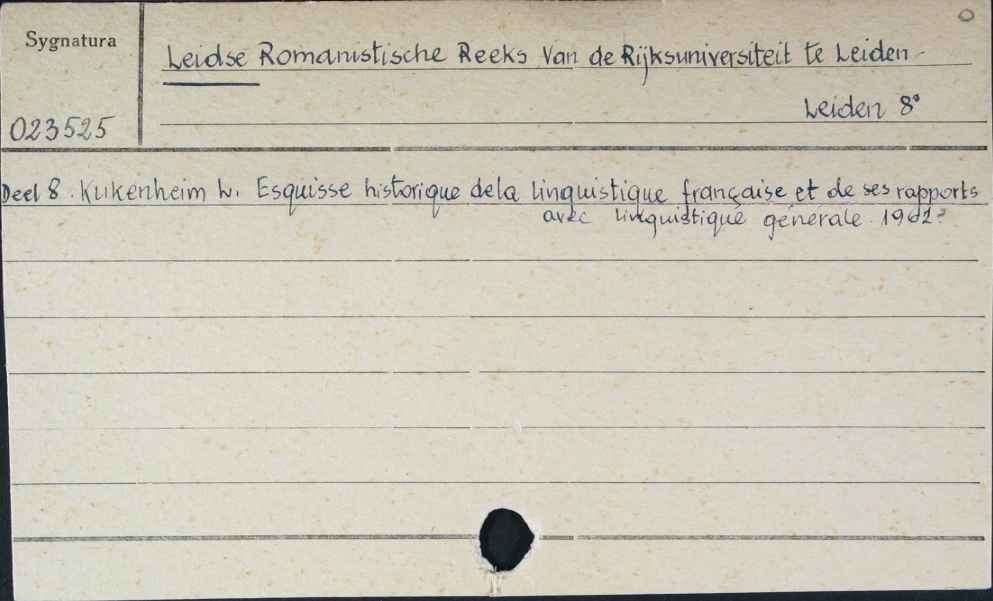 Sygnatura
Leidse Romanistische Reeks Van de Rijksuniversiteit te Leiden
Leiden 8°
023525
Deel 8. Kukenheim L. Esquisse historique dela linguistique française et de ses rapports
avec linguistique générale. 1962²